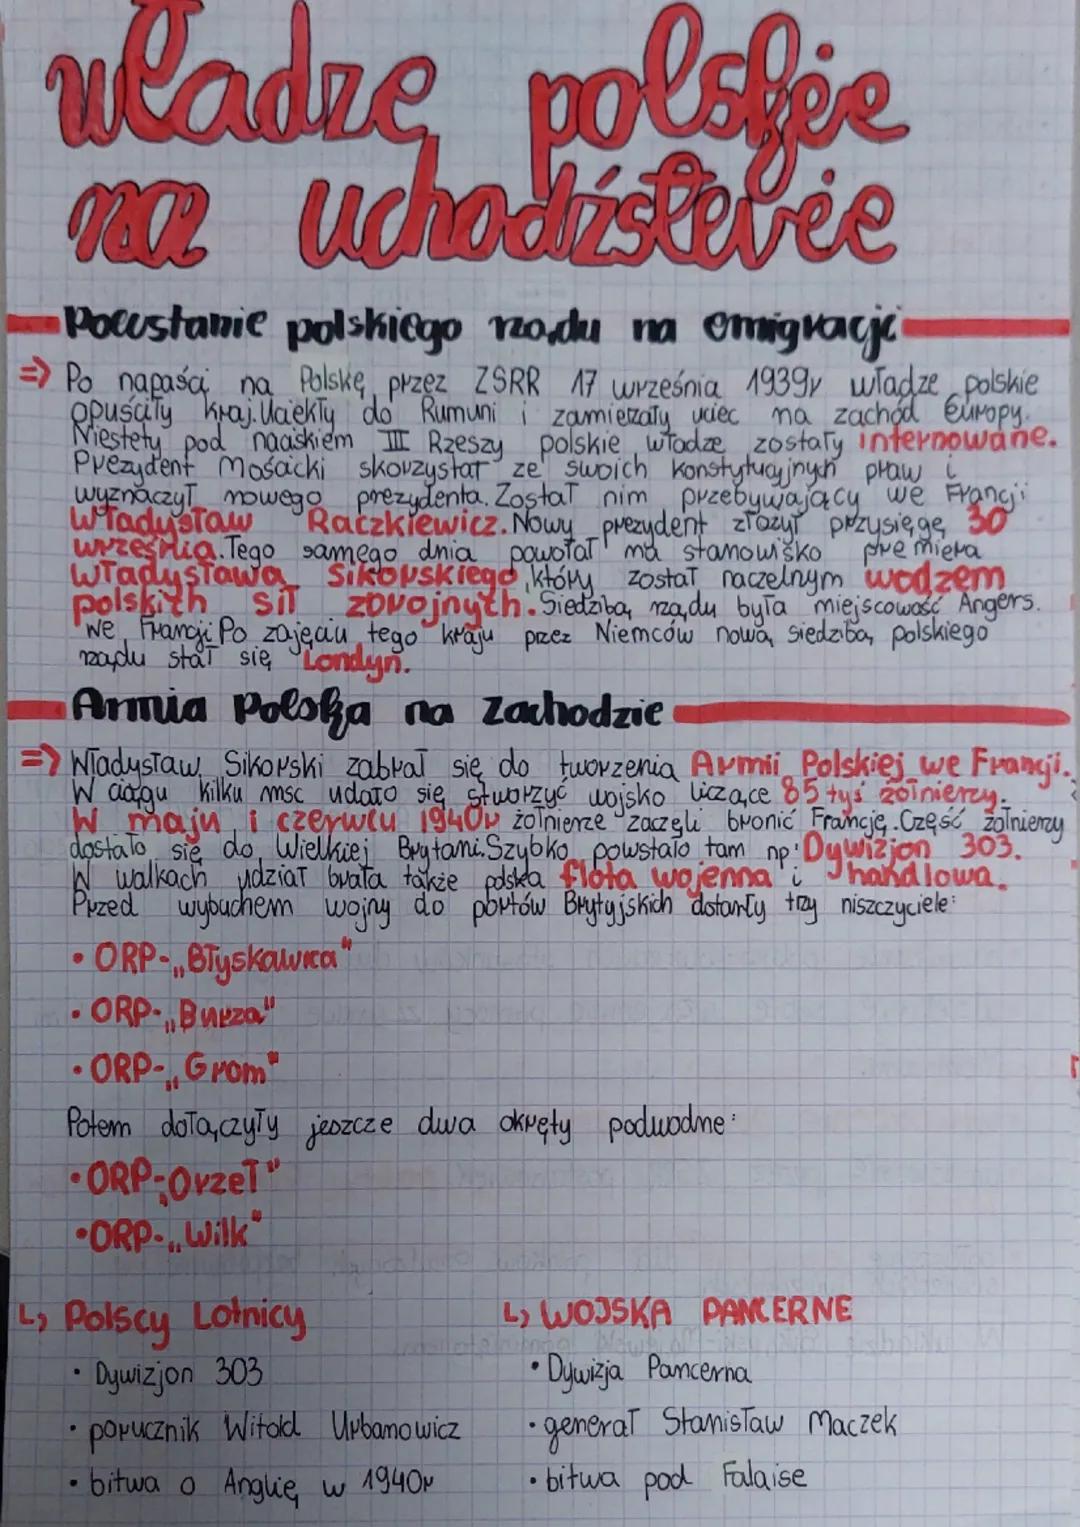 władze polskie
na uchodźstwie
Powstanie polskiego rządu na emigracji
=> Po napaści na Polskę przez ZSRR 17 września 1939r władze polskie
opuściły kraj. Uciekły do Rumuni i zamierzały uciec na zachód Europy.
Niestety pod naciskiem III Rzeszy polskie władze zostały internowane.
Prezydent Mościcki skorzystał ze swoich konstytucyjnych praw i
wyznaczył nowego prezydenta. Został nim przebywający we Francji
Władysław Raczkiewicz. Nowy prezydent złożył przysięgę 30
września. Tego samego dnia powołał na stanowisko premiera
Władysława Sikorskiego, który został naczelnym wodzem
polskich sił zbrojnych. Siedzibą rządu była miejscowość Angers.
we Francji Po zajęciu tego kraju przez Niemców nową siedzibą polskiego
rządu stał się Londyn.
Armia Polska na Zachodzie
=> Władysław Sikorski zabrał się do tworzenia Armii Polskiej we Francji.
W ciągu kilku msc udało się stworzyć wojsko liczące 85 tyś żołnierzy.
W maju i czerwcu 1940r żołnierze zaczęli bronić Francję. Część żołnierzy
dostało się do Wielkiej Brytani. Szybko powstało tam np. Dywizjon 303.
W walkach udział brała także polska flota wojenna i handlowa.
Przed wybuchem wojny do portów Brytyjskich dotarły trzy niszczyciele:
• ORP-„Błyskawica"
• ORP-„Burza"
• ORP-„Grom"
Potem dołączyły jeszcze dwa okręty podwodne:
• ORP-„Orzeł"
• ORP-„Wilk"
↳ Polscy Lotnicy
• Dywizjon 303
• porucznik Witold Urbanowicz
• bitwa o Anglię w 1940r
↳ WOJSKA PANCERNE
• Dywizja Pancerna
• generał Stanisław Maczek
• bitwa pod Falaise